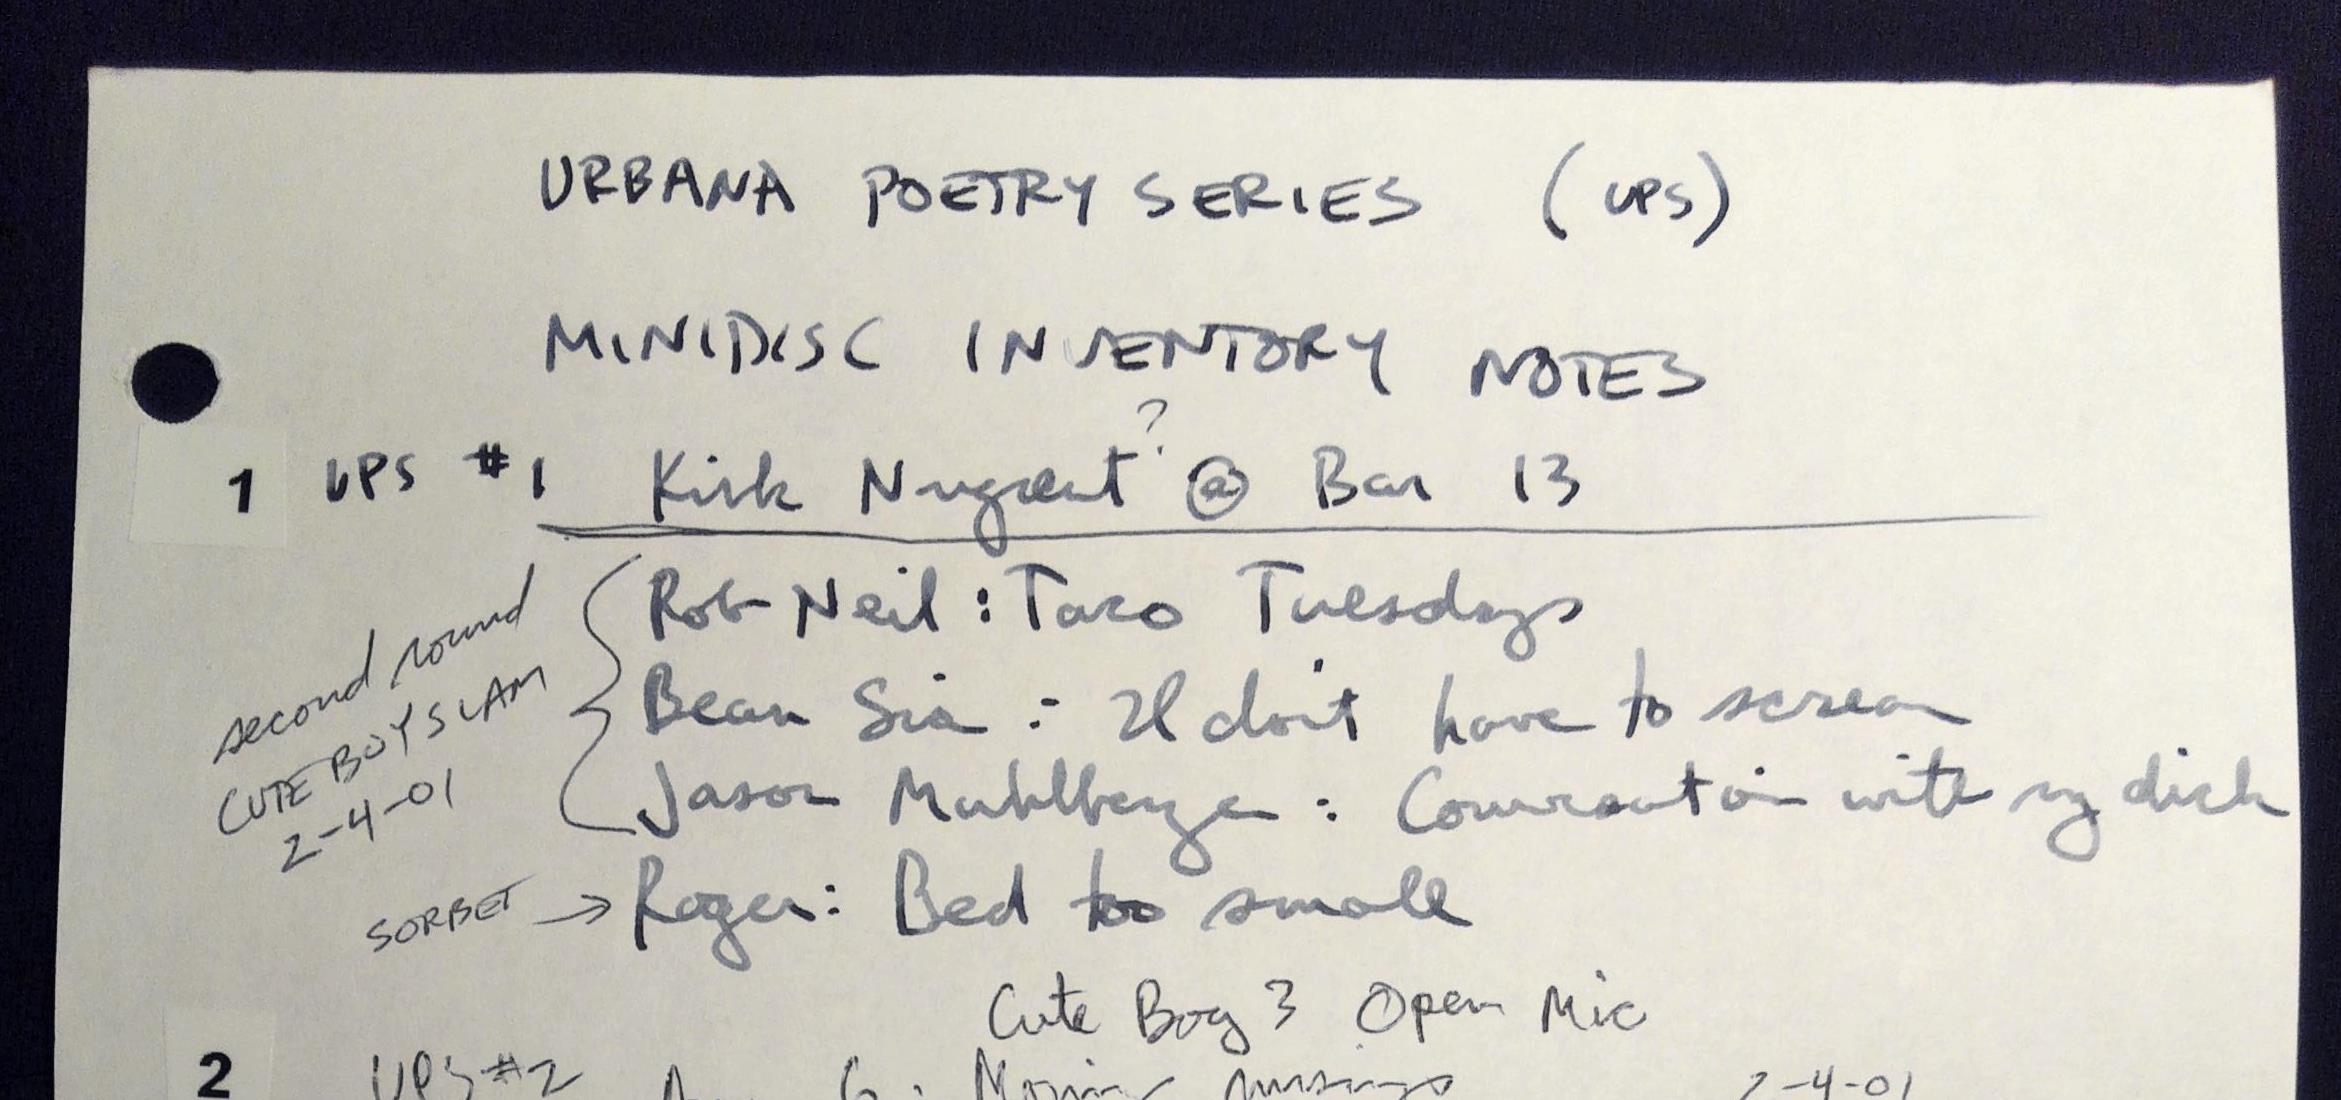 URBANA POETRY SERIES (UPS)
MINIDISC INVENTORY NOTES
?
1 UPS #1 Kirk Nugent @ Bar 13
second round
CUTE BOY SLAM
2-4-01
Rob Neil: Taco Tuesdays
Beau Sia: I don't have to scream
Jason Muhlberger: Conversation with my dick
SORBET → Roger: Bed too small
Cute Boy 3 Open Mic
2 UPS #2 2-4-01